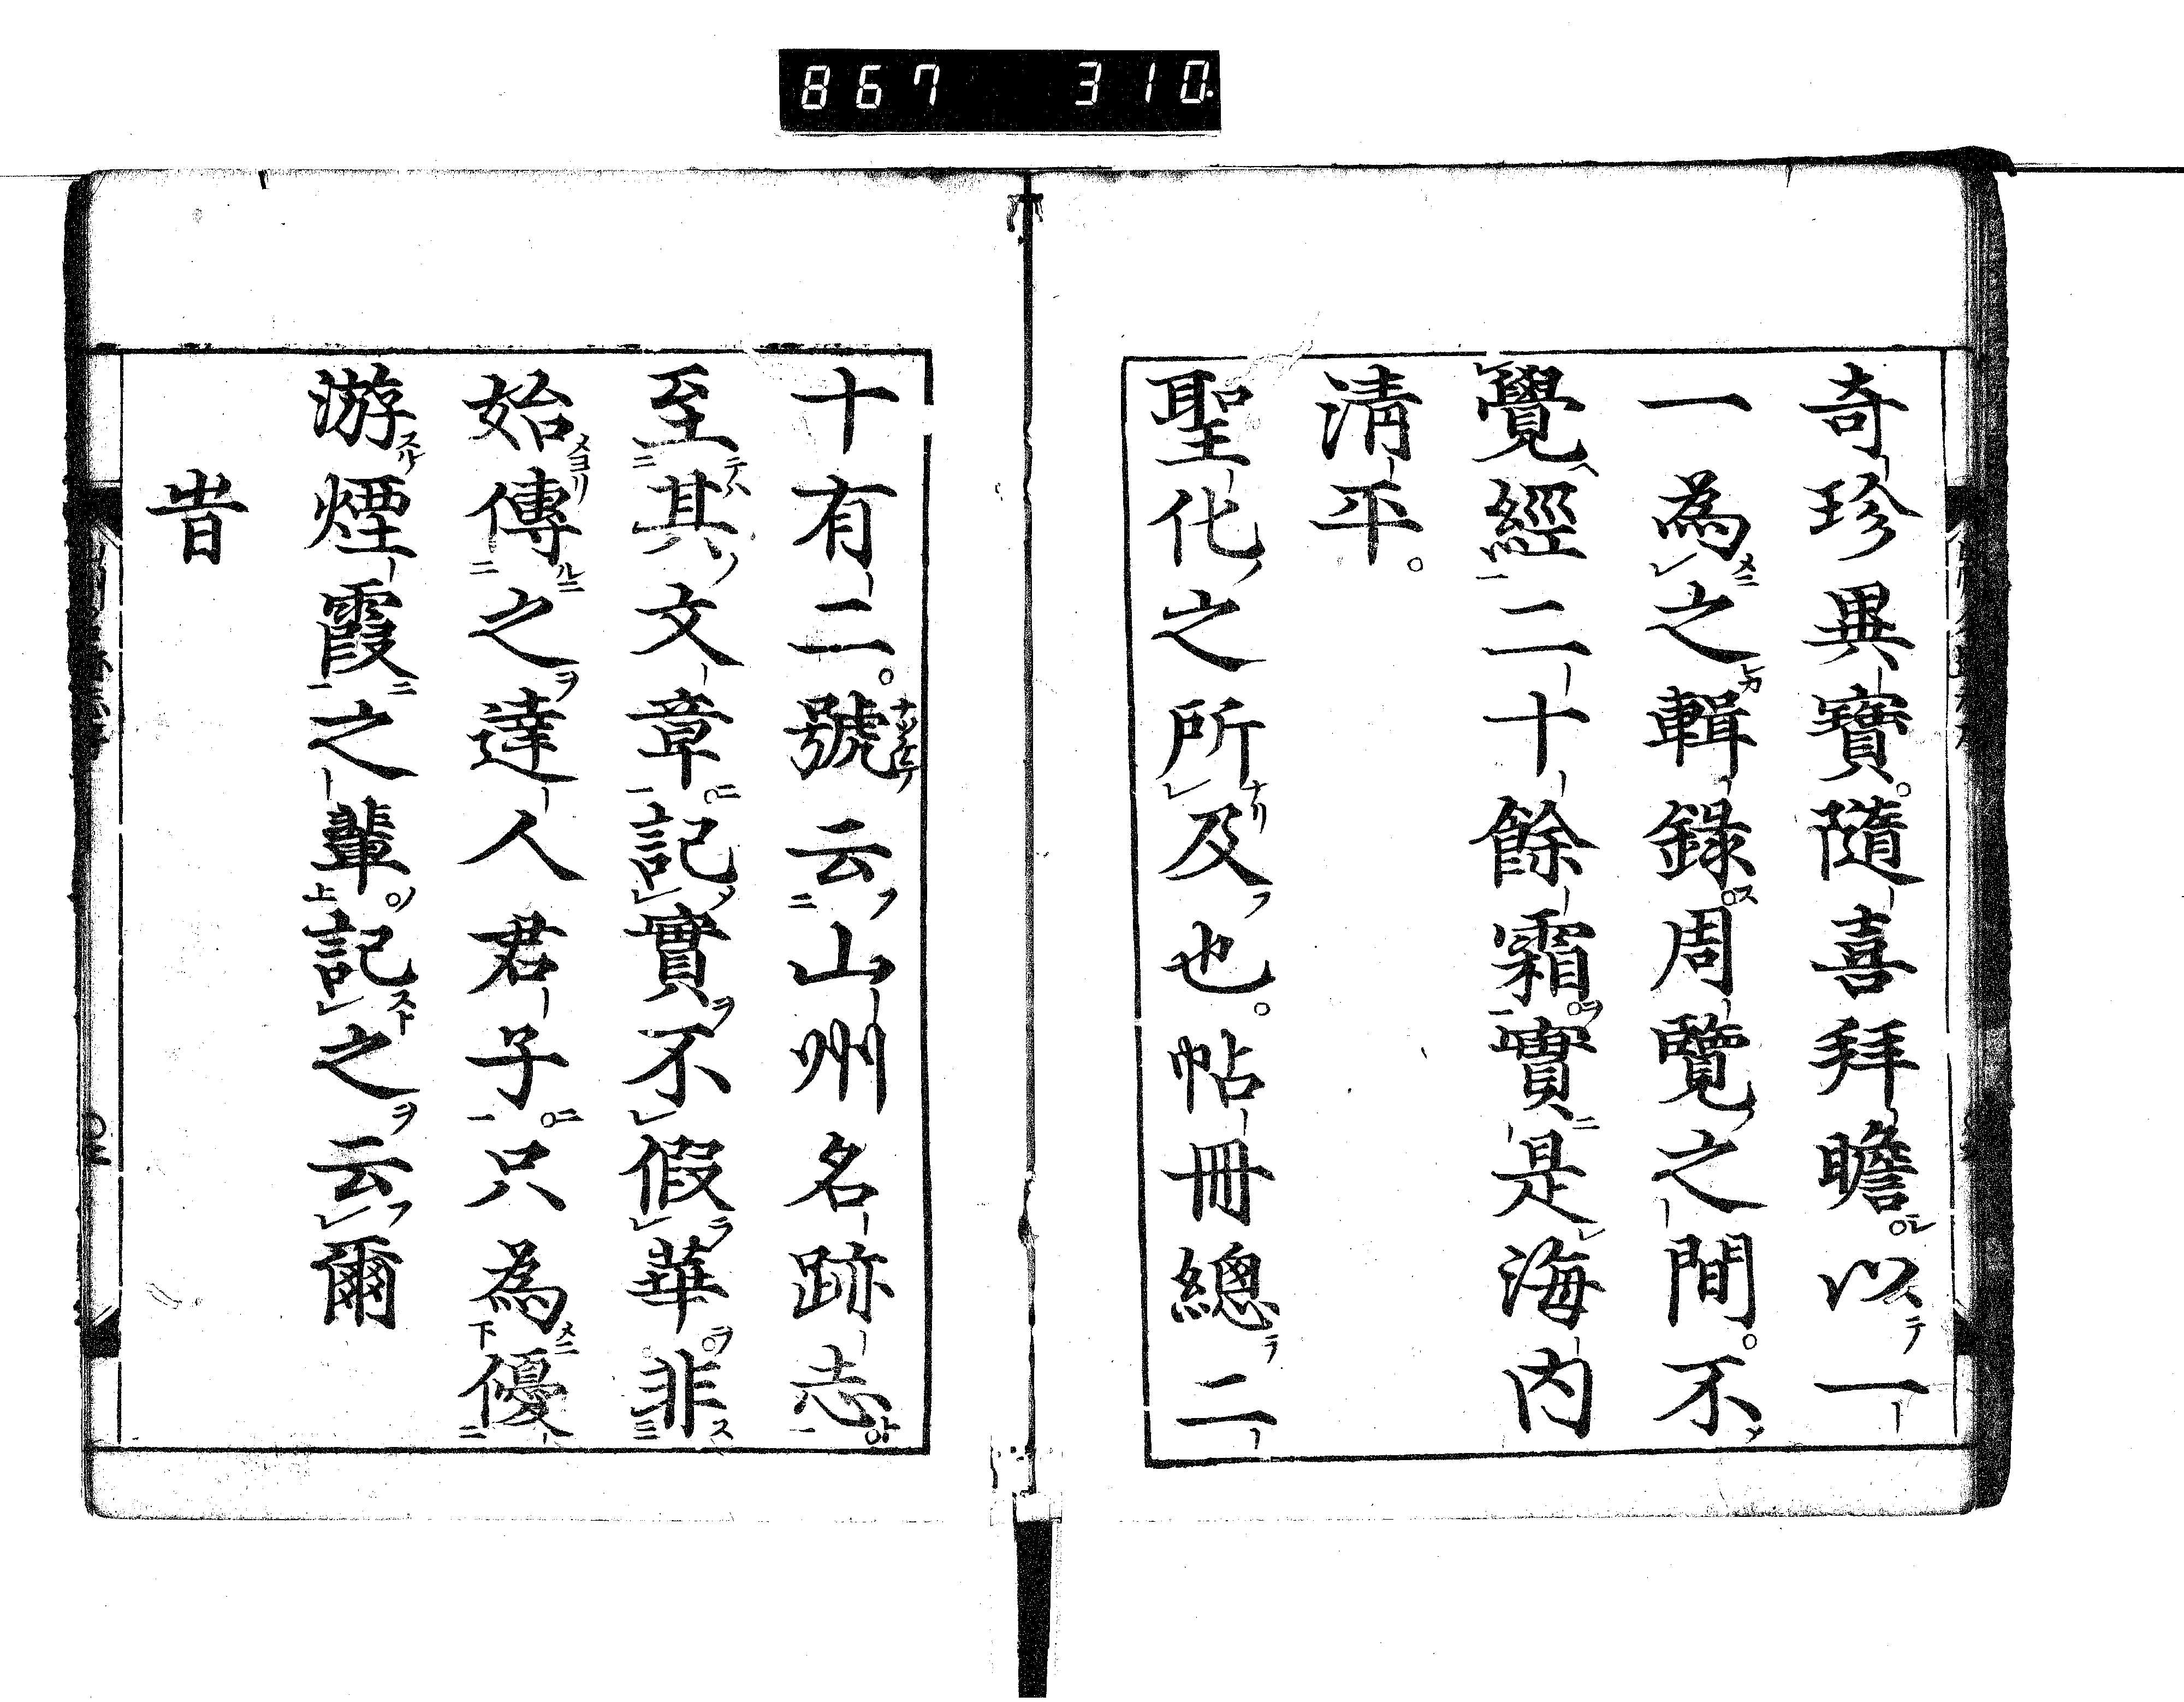 867 310
奇珍異寶。隨喜拜瞻。以一
一為之輯錄。周覽之間。不
覺經二十餘霜。實是海内
清平。
聖化之所及也。帖冊總二
十有二。號云山州名跡志。
至其文章。記實不假華。非
始傳之達人君子。只為優
游煙霞之輩。記之云爾
旹